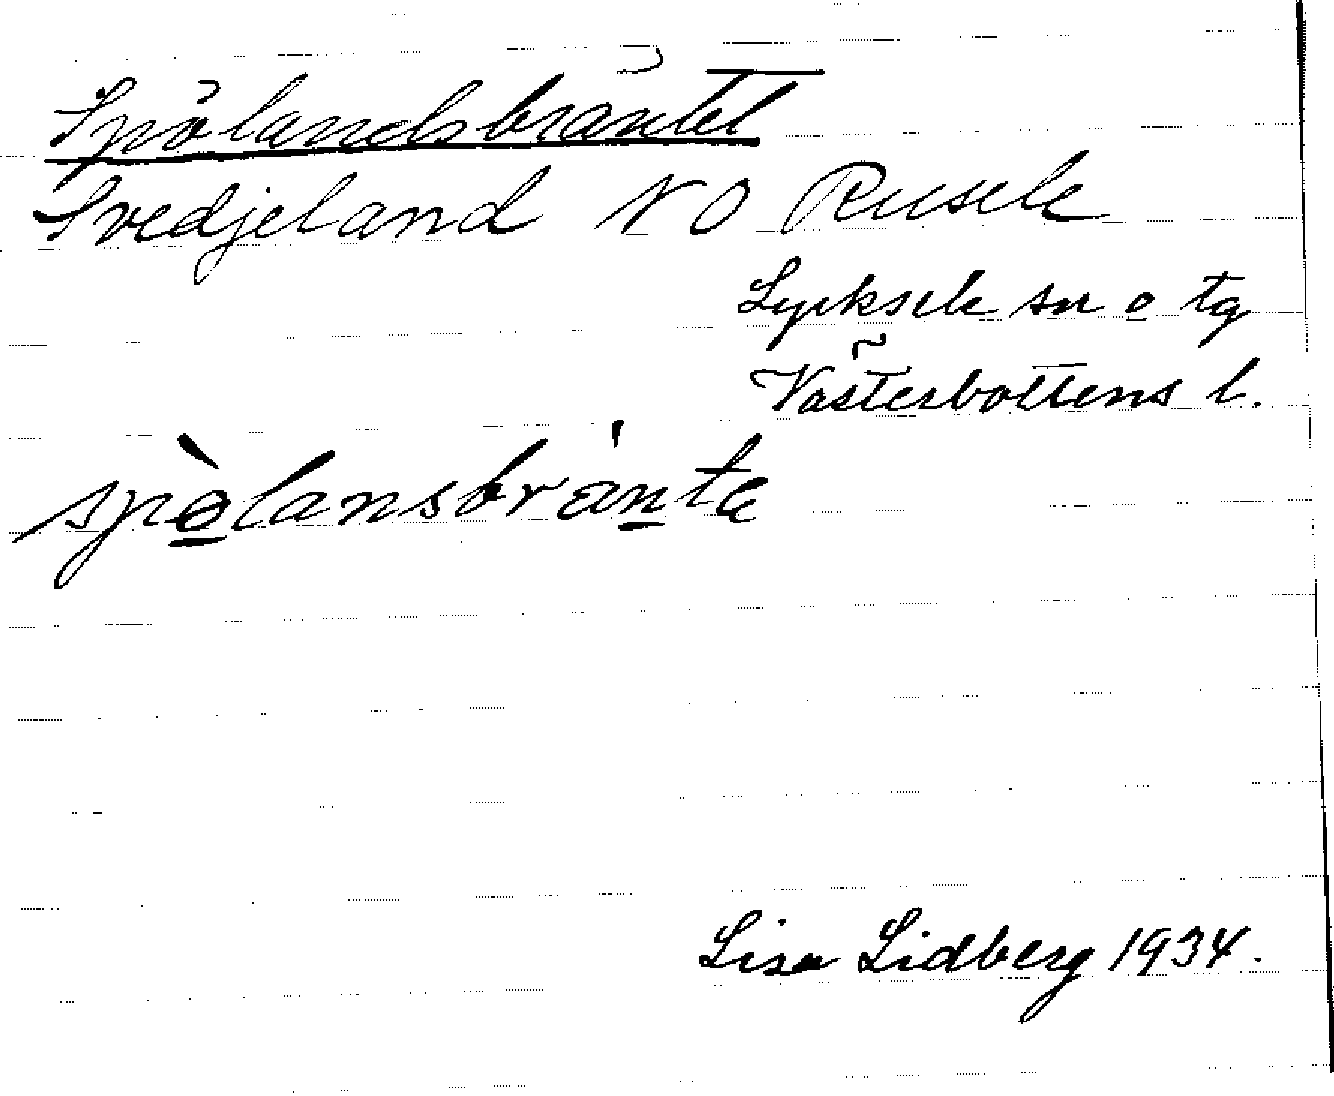 Spölandsbräntet
Svedjeland NO Rusele
Lycksele sn o tg
Västerbottens l.
spò̱lansbräṉte
Lisa Lidberg 1934.